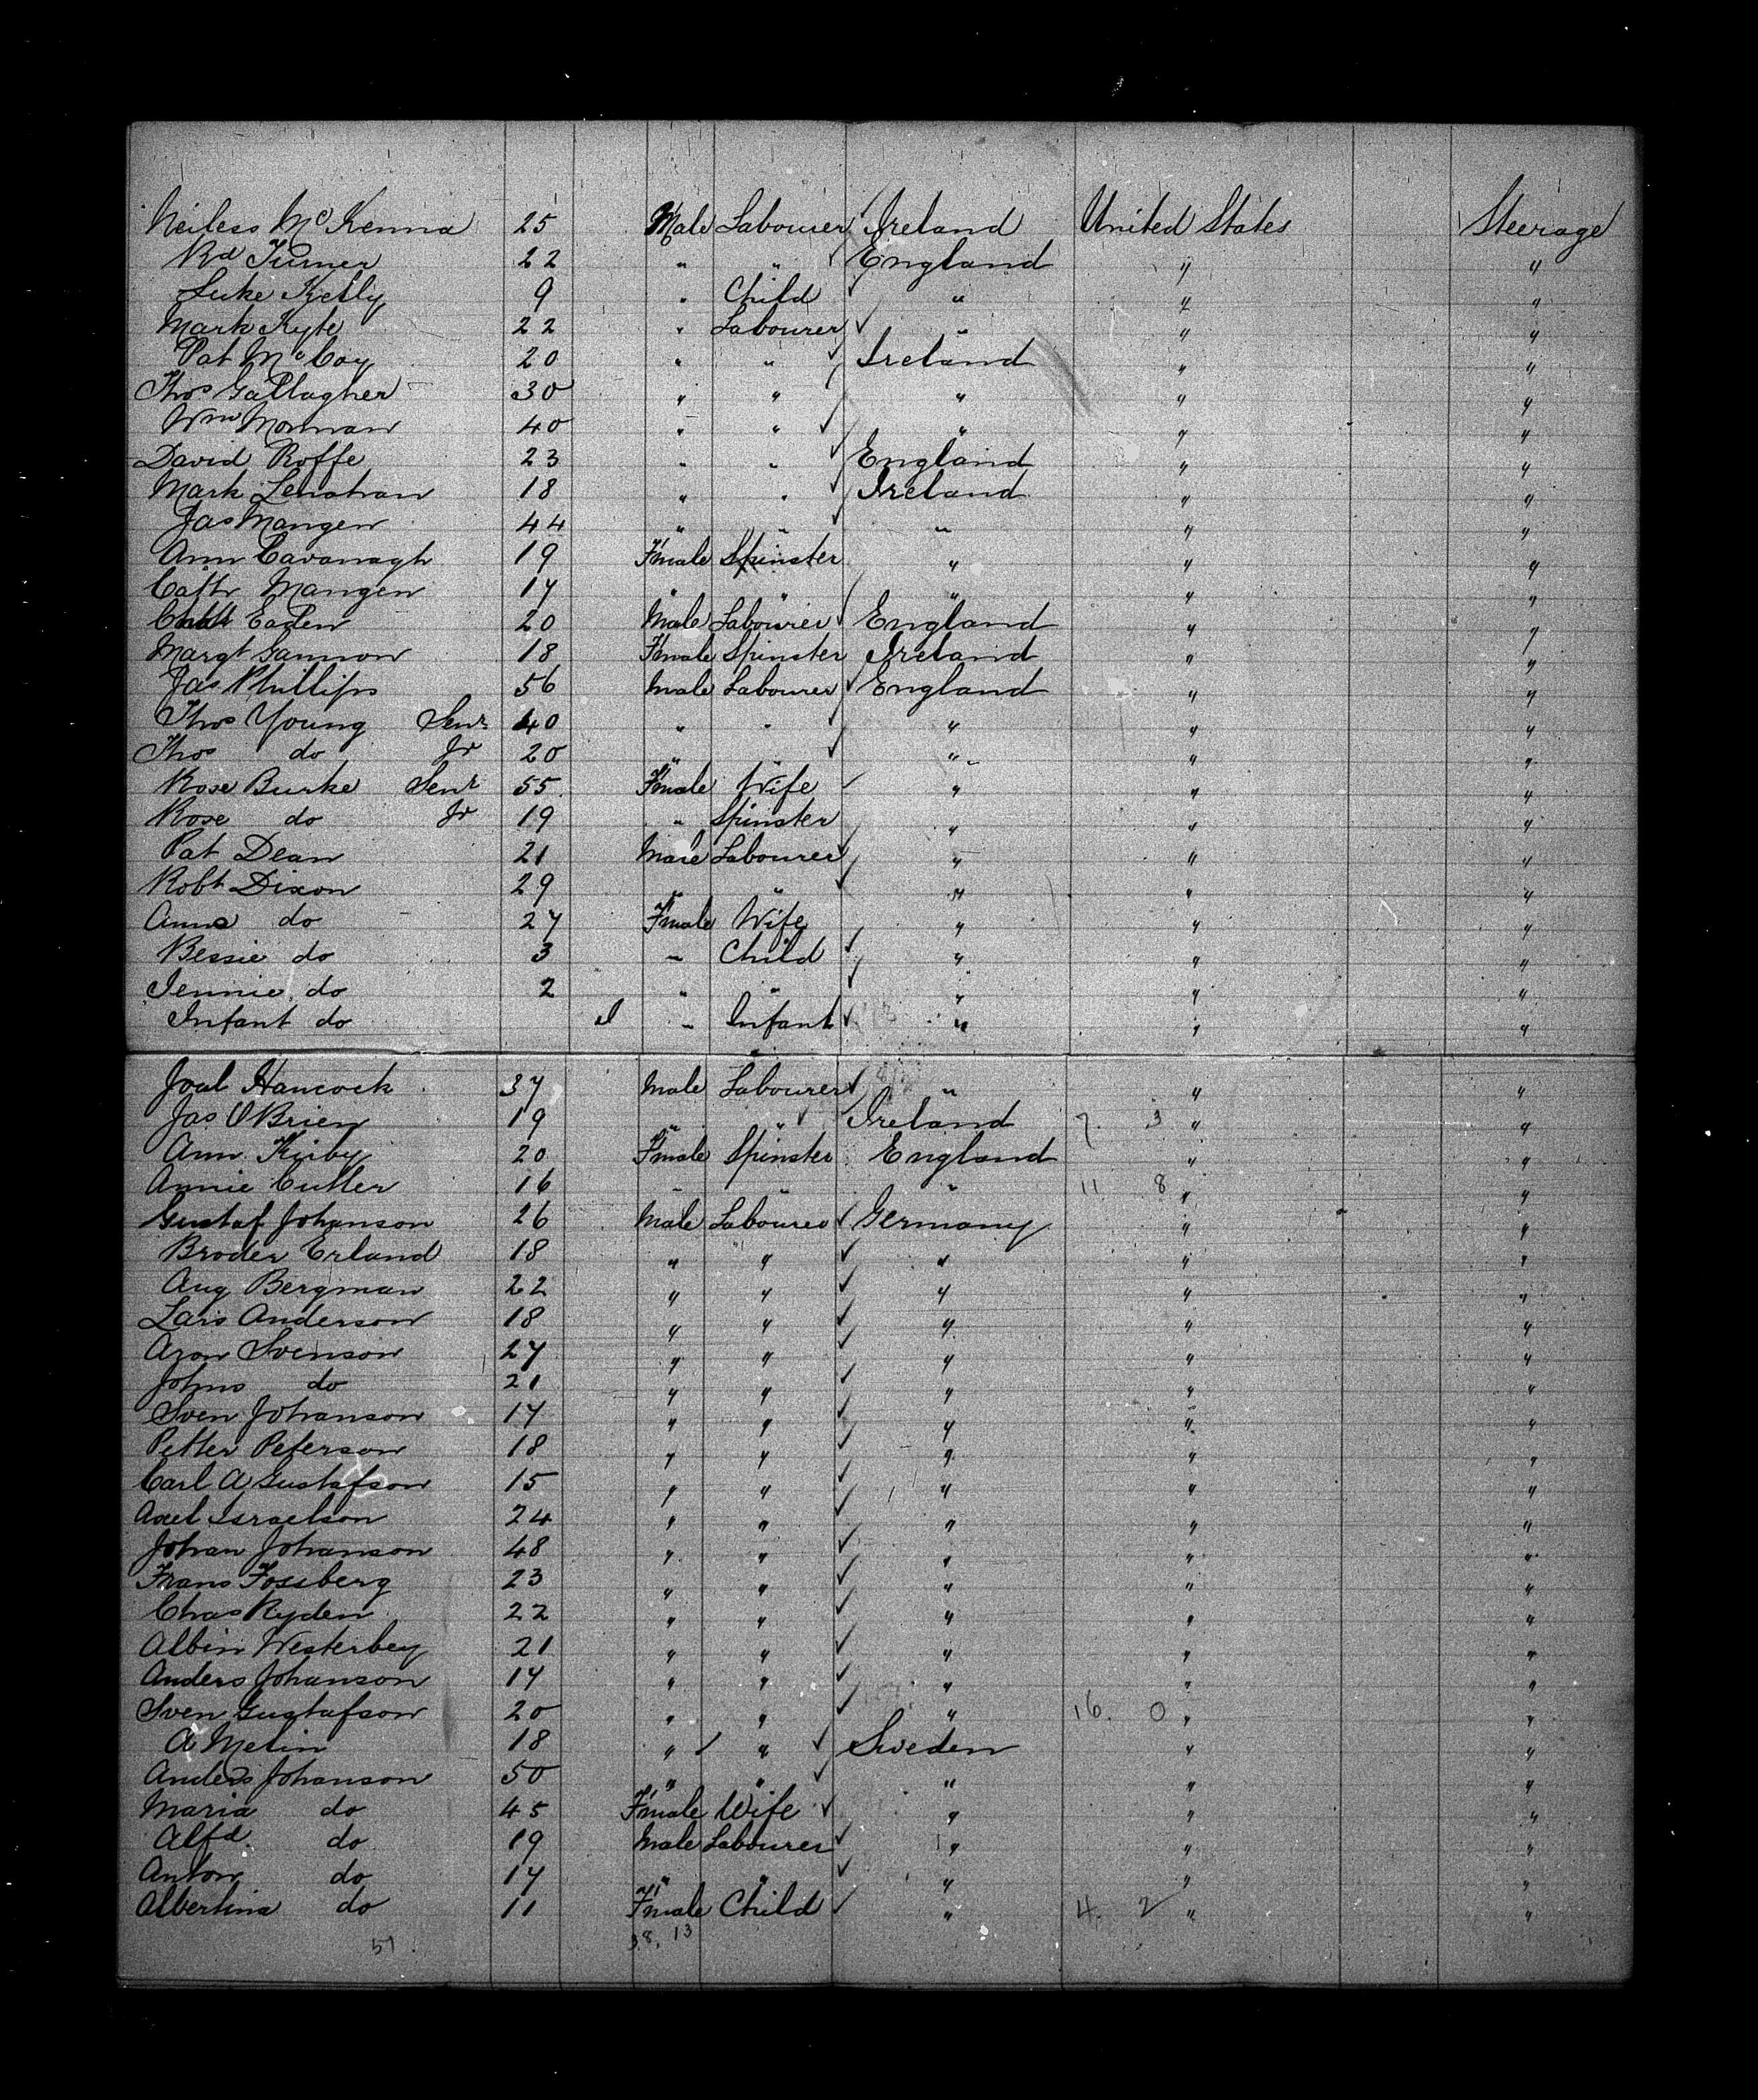 McKenna 25 Male Labourer Ireland United States Steerage
Rd Turner 22 " " England " "
Luke Kelly 9 " Child " " "
Mark Kyte 22 " Labourer " " "
Pat McCoy 20 " " Ireland " "
Thos Gallagher 30 " " " " "
Wm Monnan 40 " " " " "
David Roffe 23 " " England " "
Mark Lenahan 18 " " Ireland " "
Jas Mangen 44 " " " " "
Ann Cavanagh 19 Female Spinster " " "
Cath Mangen 17 " " " " "
Eaden 20 Male Labourer England " "
Margt Gannon 18 Female Spinster Ireland " "
Jas Phillips 56 Male Labourer England " "
Thos Young Senr 40 " " " " "
Thos do Jr 20 " " " " "
Rose Burke Senr 55 Female Wife " " "
Rose do Jr 19 " Spinster " " "
Pat Dean 21 Male Labourer " " "
Robt Dixon 29 " " " " "
Anna do 27 Female Wife " " "
Bessie do 3 " Child " " "
Jennie do 2 " " " " "
Infant do " Infant " " "
Joal Hancock 37 Male Labourer " " "
Jas OBrien 19 " " Ireland 7. 3 " "
Ann Kirby 20 Female Spinster England " "
Annie Cutler 16 " " " 11 8 " "
Gustaf Johanson 26 Male Labourer Germany " "
Broder Erland 18 " " " " "
Aug Bergman 22 " " " " "
Lars Anderson 18 " " " " "
Aron Svenson 27 " " " " "
Johns do 21 " " " " "
Sven Johanson 17 " " " " "
Petter Peterson 18 " " " " "
Carl A Gustafson 15 " " " " "
Axel Israelson 24 " " " " "
Johan Johanson 48 " " " " "
Frans Fossberg 23 " " " " "
Chas Ryden 22 " " " " "
Albin Westerbey 21 " " " " "
Anders Johanson 17 " " " " "
Sven Gustafson 20 " " " 16. 0 " "
A Melin 18 " " Sweden " "
Anders Johanson 50 " " " " "
Maria do 45 Female Wife " " "
Alfd. do 19 Male Labourer " " "
Anton do 17 " " " " "
Albertina do 11 Female Child " 4. 2 " "
51. 38, 13